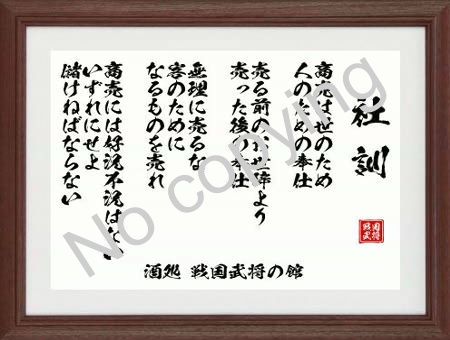 社訓
商売は世のため
人のための奉仕
売る前のお世辞より
売った後の奉仕
無理に売るな
客のために
なるものを売れ
商売には好況不況はない
いずれにせよ
儲けねばならない
戦国
武将
酒処 戦国武将の館
No copying